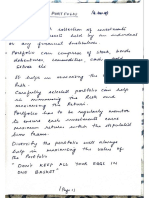 PORTFOLIO
collection of investments
held by an individual
or any financial institution.
Portfolio can comprise of stock, bonds
debentures, commodities, cash, gold
It helps in maximizing the
Carefully selected portfolio can help
in minimizing the Risk and
maximizing the Return.
Portfolios has to be regularly monitor
to ensure each investment earns
maximum return within the stipulated
time frame.
Diversify the portfolio will always
help in maximizing the value of
the Portfolio
"DON'T KEEP ALL YOUR EGGS IN
ONE BASKET"
| Page